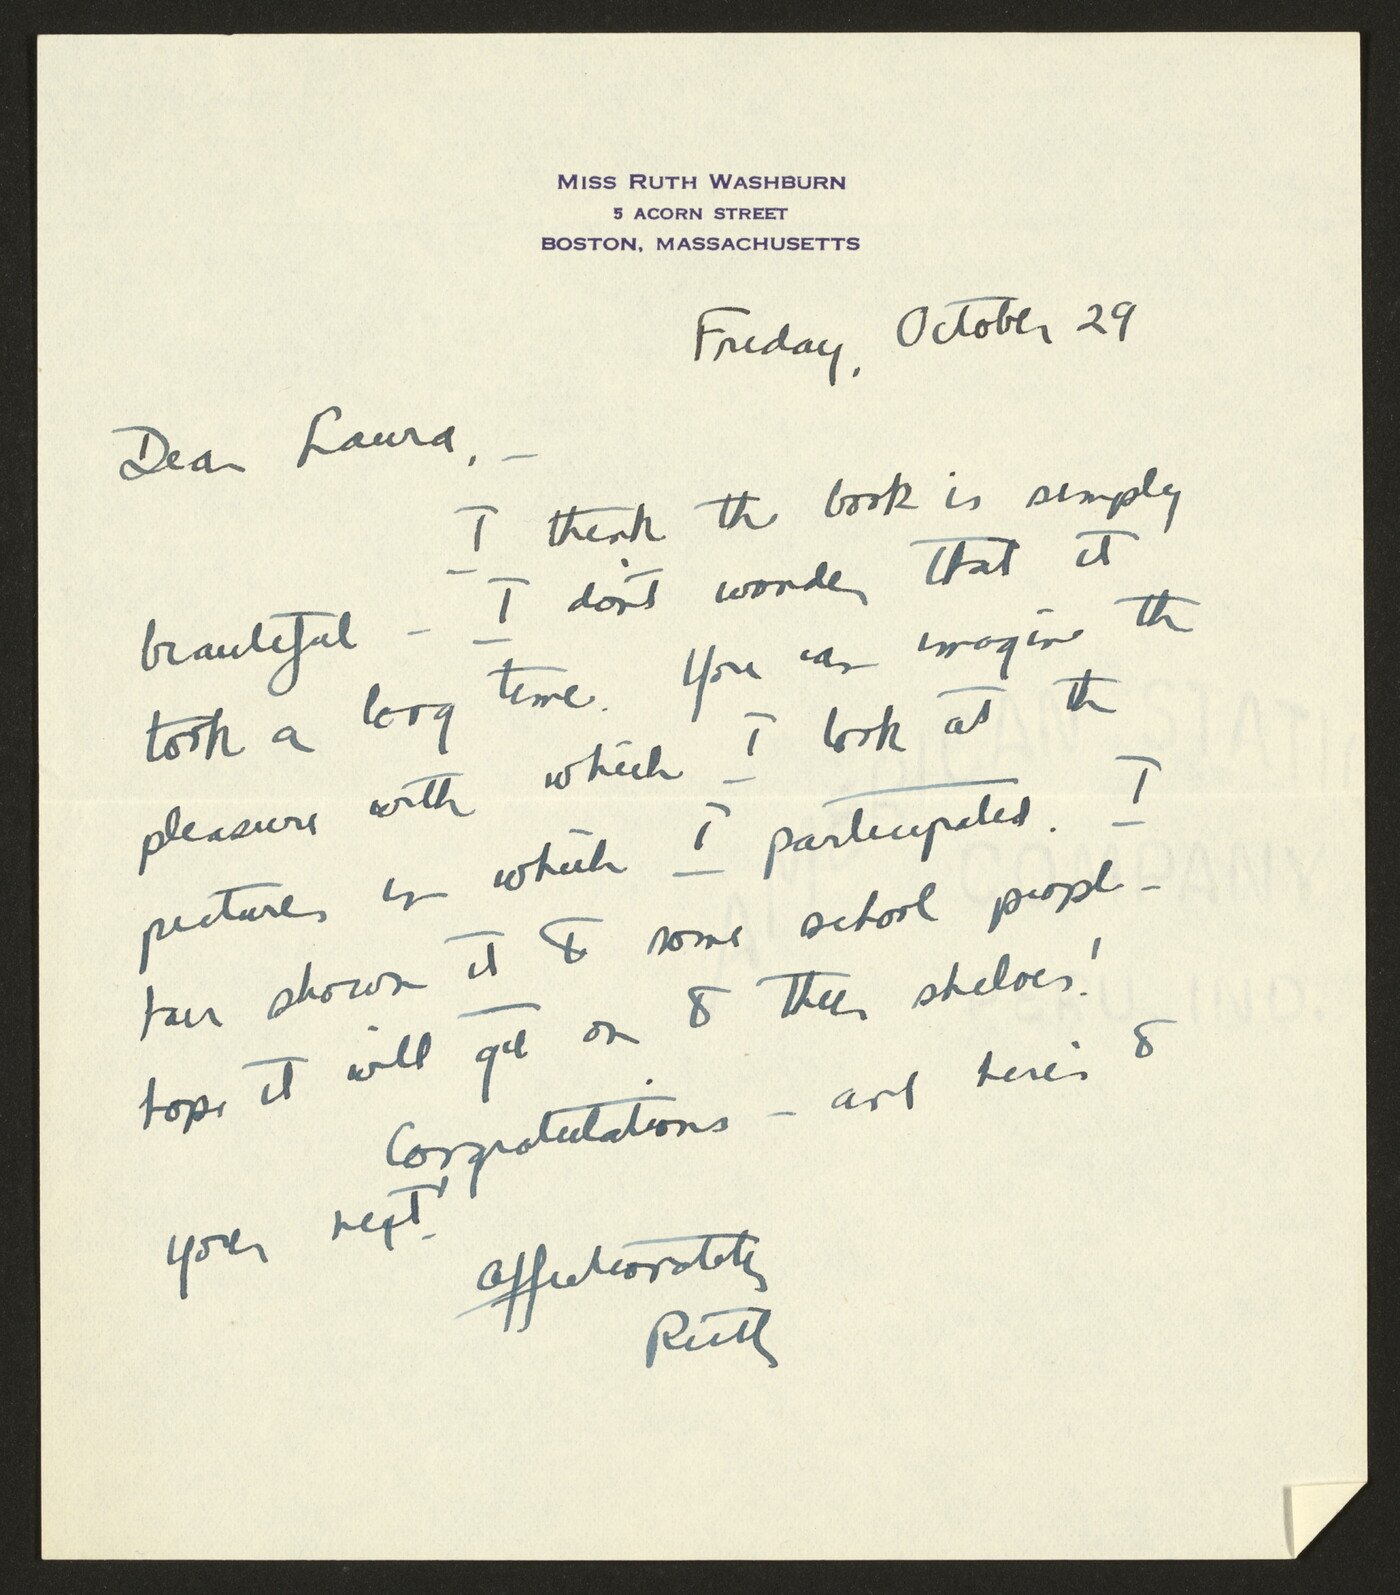 MISS RUTH WASHBURN
5 ACORN STREET
BOSTON, MASSACHUSETTS
Friday, October 29
Dear Laura, –
I think the book is simply
beautiful – I don't wonder that it
took a long time. You can imagine the
pleasure with which I look at the
pictures in which I participated. I
have shown it to some school people –
hope it will get on to their shelves!
Congratulations – and here's to
your next!
Affectionately
Ruth
COMPANY
IND.